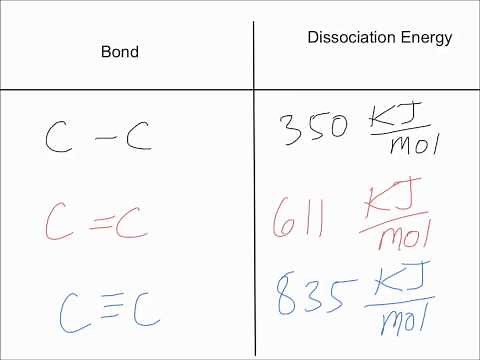 Bond Dissociation Energy
C - C 350 KJ/mol
C = C 611 KJ/mol
C ≡ C 835 KJ/mol